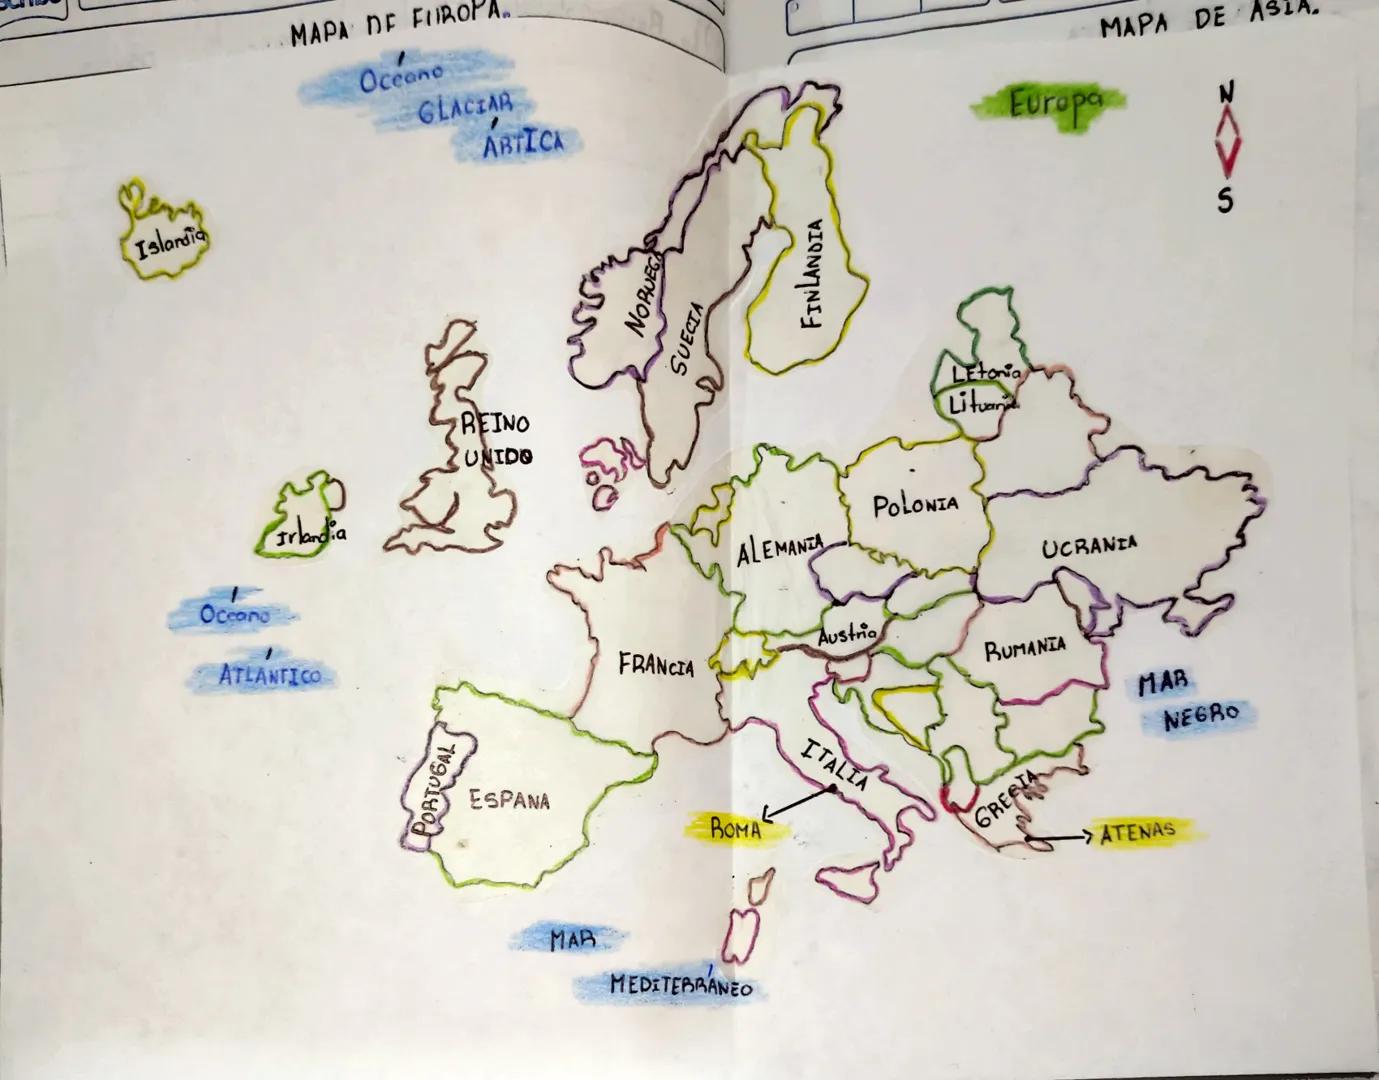 MAPA DE EUROPA.
MAPA DE ASIA.
Océano
GLACIAR
ÁRTICA
Europa
N
S
Islandia
NORUEGA
SUECIA
FINLANDIA
LEtonia
Lituania
REINO
UNIDO
Irlandia
POLONIA
ALEMANIA
UCRANIA
Océano
ATLÁNTICO
Austria
FRANCIA
RUMANIA
MAR
NEGRO
PORTUGAL
ESPANA
ITALIA
GRECIA
ROMA
ATENAS
MAR
MEDITERRÁNEO